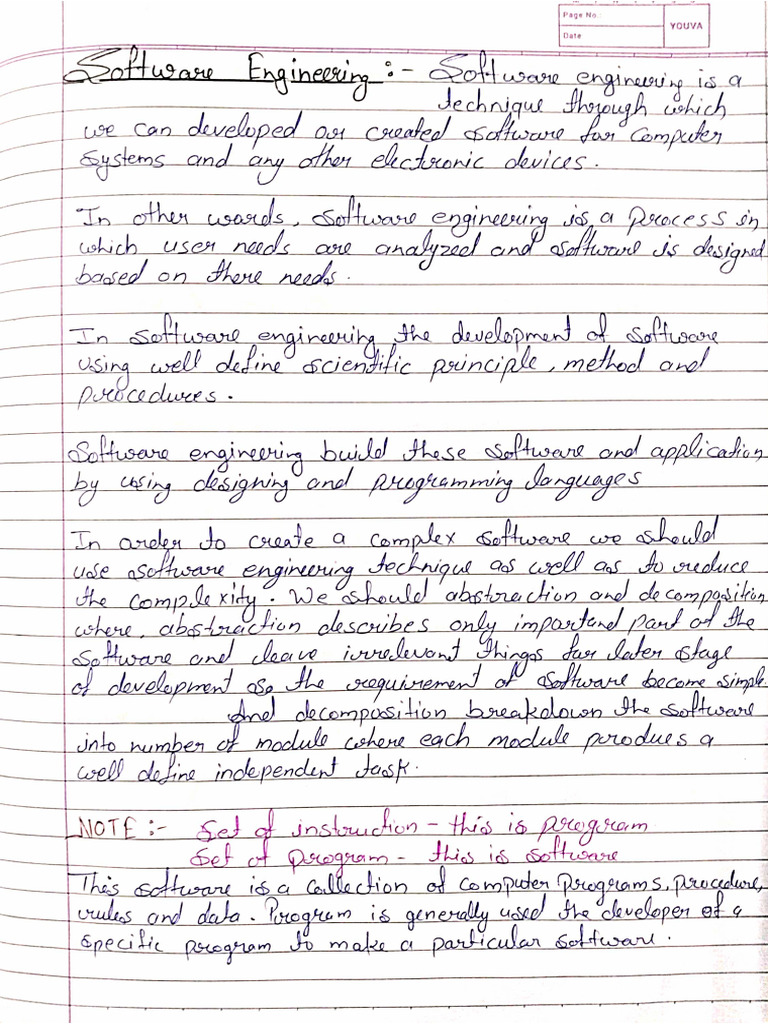 Page No.
Date
YOUVA
Software Engineering :- Software engineering is a
technique through which
we can developed or created software for computer
systems and any other electronic devices.
In other words, software engineering is a process in
which user needs are analyzed and software is designed
based on there needs.
In software engineering the development of software
using well define scientific principle, method and
procedures.
Software engineering build these software and application
by using designing and programming languages
In order to create a complex software we should
use software engineering technique as well as to reduce
the complexity. We should abstraction and decomposition
where, abstraction describes only importand part of the
software and leave irrrelevant things for later stage
of development so the requirement of software become simple.
And decomposition breakdown the software
into number of module where each module produes a
well define independent task.
NOTE :- Set of instruction - this is program
Set of program - this is software
This software is a collection of computer programs, procedure,
rules and data. Program is generally used the developer of a
specific program to make a particular software.